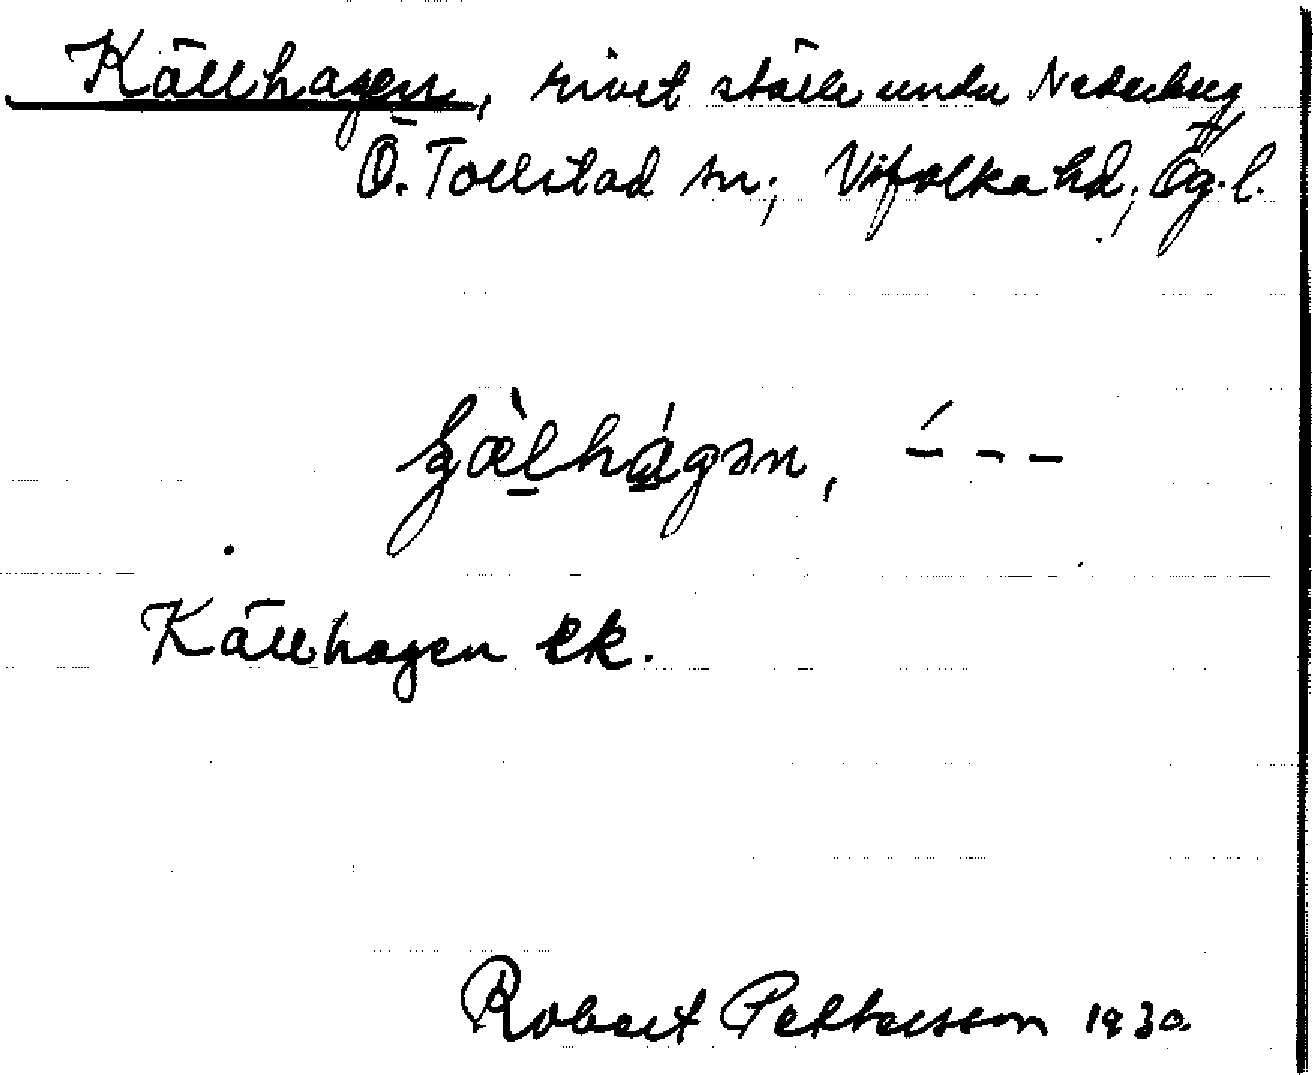 Källhagen, rivet ställe under Nederberg
Ö. Tollstad sn; Vifolka hd; Ög. l.
ʓæ̀lhágən, ́- - -
Källhagen ek.
Robert Pettersson 1930